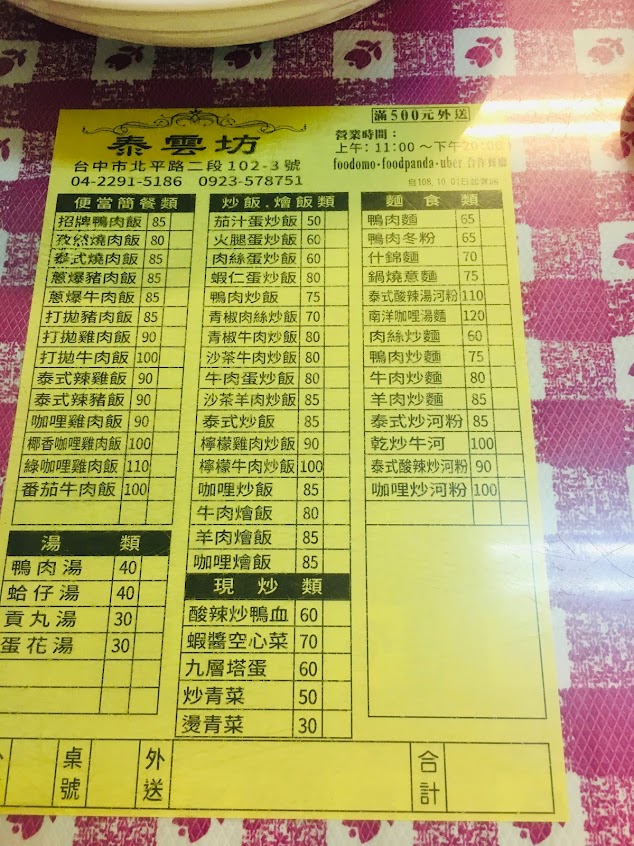 滿500元外送
泰雲坊
營業時間：
上午：11:00～下午20:00
台中市北平路二段102-3號
foodomo·foodpanda·uber 合作餐廳
04-2291-5186 0923-578751
自108.10.01日起實施
便當簡餐類
招牌鴨肉飯 85
孜然燒肉飯 80
泰式燒肉飯 85
蔥爆豬肉飯 85
蔥爆牛肉飯 85
打拋豬肉飯 85
打拋雞肉飯 90
打拋牛肉飯 100
泰式辣雞飯 90
泰式辣豬飯 90
咖哩雞肉飯 90
椰香咖哩雞肉飯 100
綠咖哩雞肉飯 110
番茄牛肉飯 100
湯類
鴨肉湯 40
蛤仔湯 40
貢丸湯 30
蛋花湯 30
炒飯.燴飯類
茄汁蛋炒飯 50
火腿蛋炒飯 60
肉絲蛋炒飯 60
蝦仁蛋炒飯 80
鴨肉炒飯 75
青椒肉絲炒飯 70
青椒牛肉炒飯 80
沙茶牛肉炒飯 80
牛肉蛋炒飯 80
沙茶羊肉炒飯 85
泰式炒飯 85
檸檬雞肉炒飯 90
檸檬牛肉炒飯 100
咖哩炒飯 85
牛肉燴飯 80
羊肉燴飯 85
咖哩燴飯 85
現炒類
酸辣炒鴨血 60
蝦醬空心菜 70
九層塔蛋 60
炒青菜 50
燙青菜 30
麵食類
鴨肉麵 65
鴨肉冬粉 65
什錦麵 70
鍋燒意麵 75
泰式酸辣湯河粉 110
南洋咖哩湯麵 120
肉絲炒麵 60
鴨肉炒麵 75
牛肉炒麵 80
羊肉炒麵 85
泰式炒河粉 85
乾炒牛河 100
泰式酸辣炒河粉 90
咖哩炒河粉 100
桌號
外送
合計